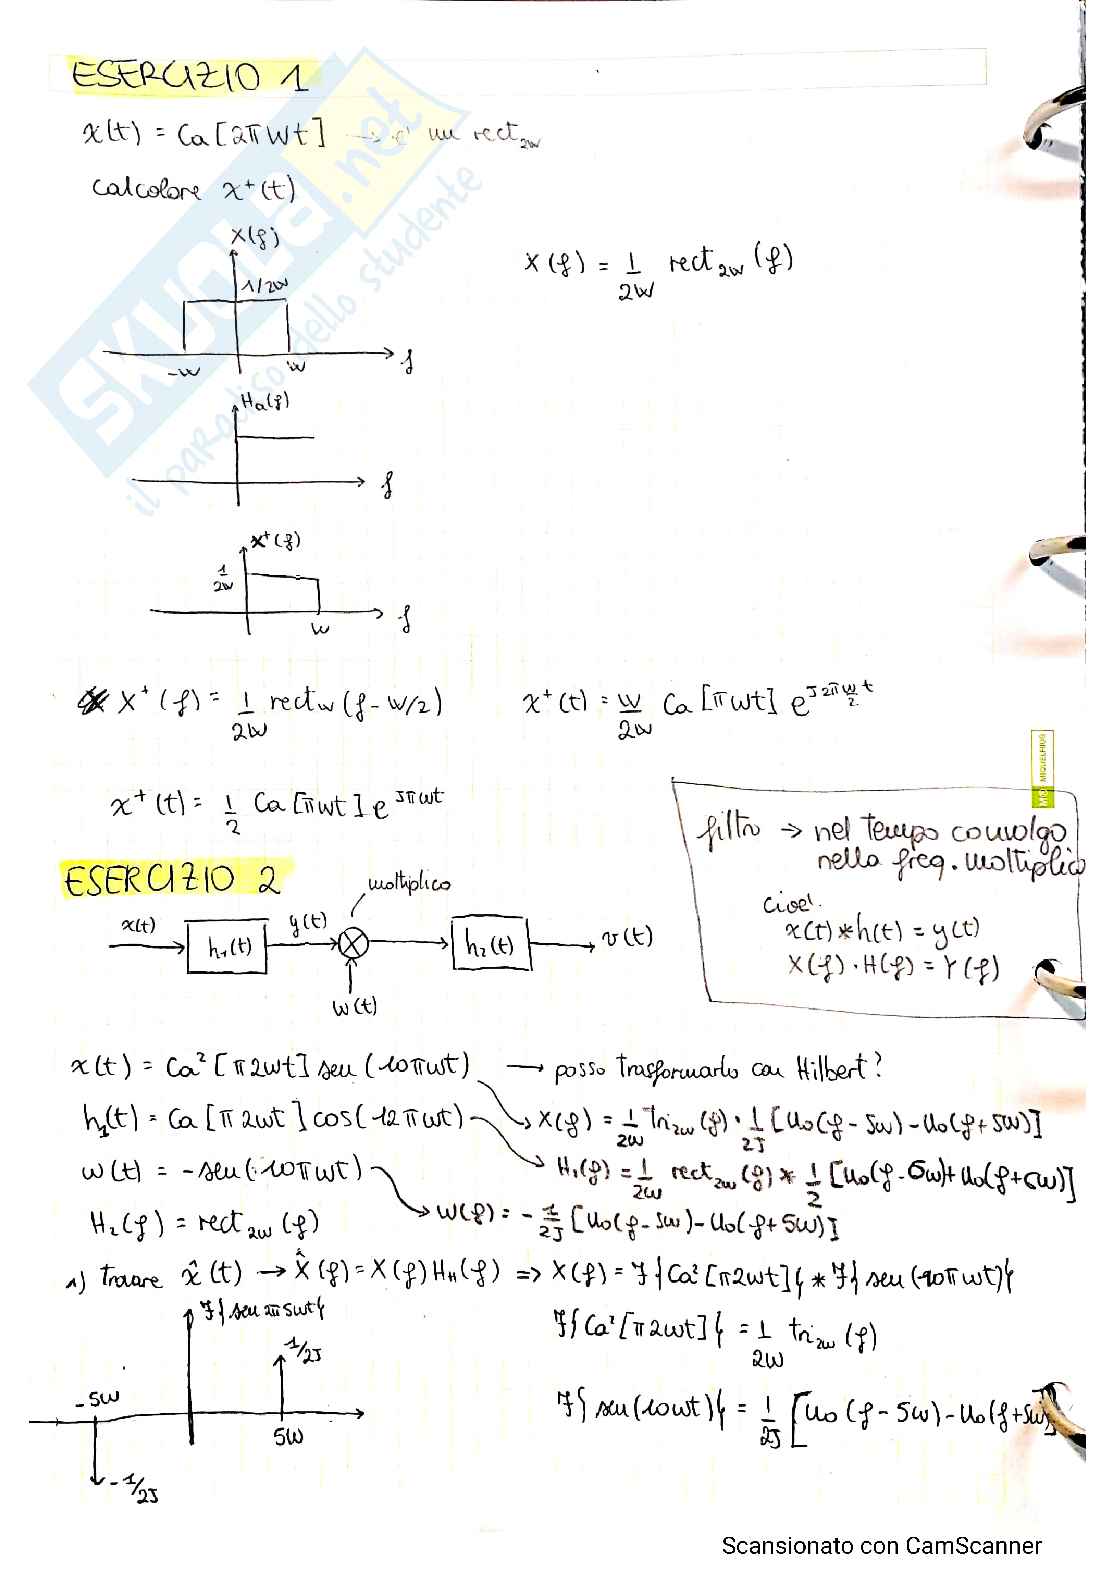 ESERCIZIO 1
x(t) = Ca[2πWt] → è un rect2w
calcolare x⁺(t)
X(f)
1/2w
-w w f
X(f) = 1/2W rect2w(f)
Ha(f)
f
X⁺(f)
1/2w
w f
X⁺(f) = 1/2W rectw(f-W/2)
x⁺(t) = W/2W Ca[πWt] e^J2πW/2 t
x⁺(t) = 1/2 Ca[πWt] e^Jπwt
filtro → nel tempo convolgo
nella freq. moltiplico
Cioè
x(t)*h(t) = y(t)
X(f)·H(f) = Y(f)
MIQUELRIUS
ESERCIZIO 2
moltiplico
x(t) h₁(t) y(t) × h₂(t) v(t)
w(t)
x(t) = Ca²[π2wt] sen(10πwt) → posso trasformarlo con Hilbert?
h₁(t) = Ca[π2wt] cos(12πwt)
X(f) = 1/2W tri2w(f) · 1/2J [u₀(f-5w) - u₀(f+5w)]
w(t) = -sen(10πwt)
H₁(f) = 1/2W rect2w(f) * 1/2 [u₀(f-6w) + u₀(f+6w)]
H₂(f) = rect2w(f)
W(f) = - 1/2J [u₀(f-5w) - u₀(f+5w)]
1) trovare x̂(t) → X̂(f) = X(f) HH(f) => X(f) = F{Ca²[π2wt]} * F{sen(10πwt)}
F{sen 2π5wt}
1/2J
-5w
5w
-1/2J
F{Ca²[π2wt]} = 1/2W tri2w(f)
F{sen(10wt)} = 1/2J [u₀(f-5w) - u₀(f+5w)]
SKUOLA.net
il paradiso dello studente
Scansionato con CamScanner